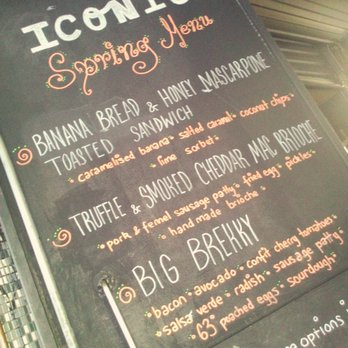 ICONIC
Spring Menu
BANANA BREAD & HONEY MASCARPONE
TOASTED SANDWICH
• caramelised banana • salted caramel • coconut chips
• lime sorbet •
TRUFFLE & SMOKED CHEDDAR MAC BRIOCHE
• pork & fennel sausage patty • fried egg • pickles
• hand made brioche •
BIG BREKKY
• bacon • avocado • confit cherry tomatoes
• salsa verde • radish • sausage patty
• 63° poached eggs • sourdough •
options